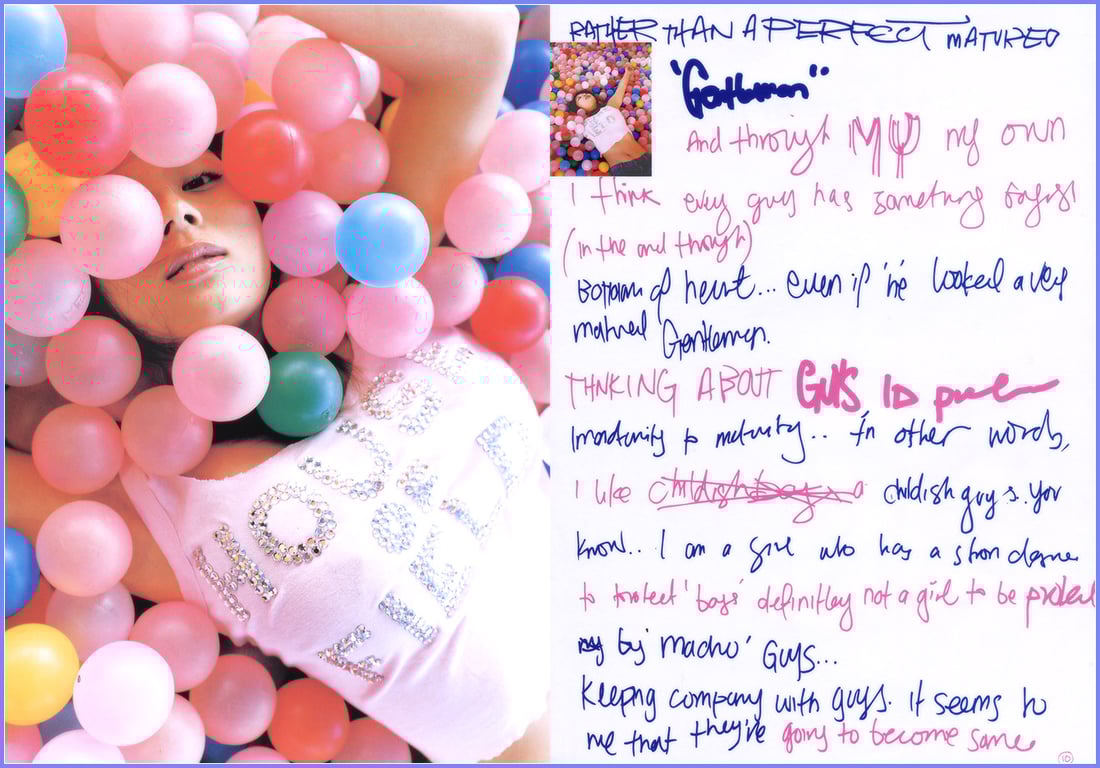 HOUSE
OF
FIELD
RATHER THAN A PERFECT MATURED
"Gentleman"
And through MY my own
I think every guy has something
(in the and through)
Bottom of heart... even if 'he looked a very
matured Gentleman.
THNKING ABOUT GUYS ID
to maturity.. In other words,
I like childish boys a childish guys. you
know.. I am a girl who has a stron
to protect 'boys' definitley not a girl to be
by 'macho' GUYS...
Keeping company with guys. It seems to
me that they're going to become same
10